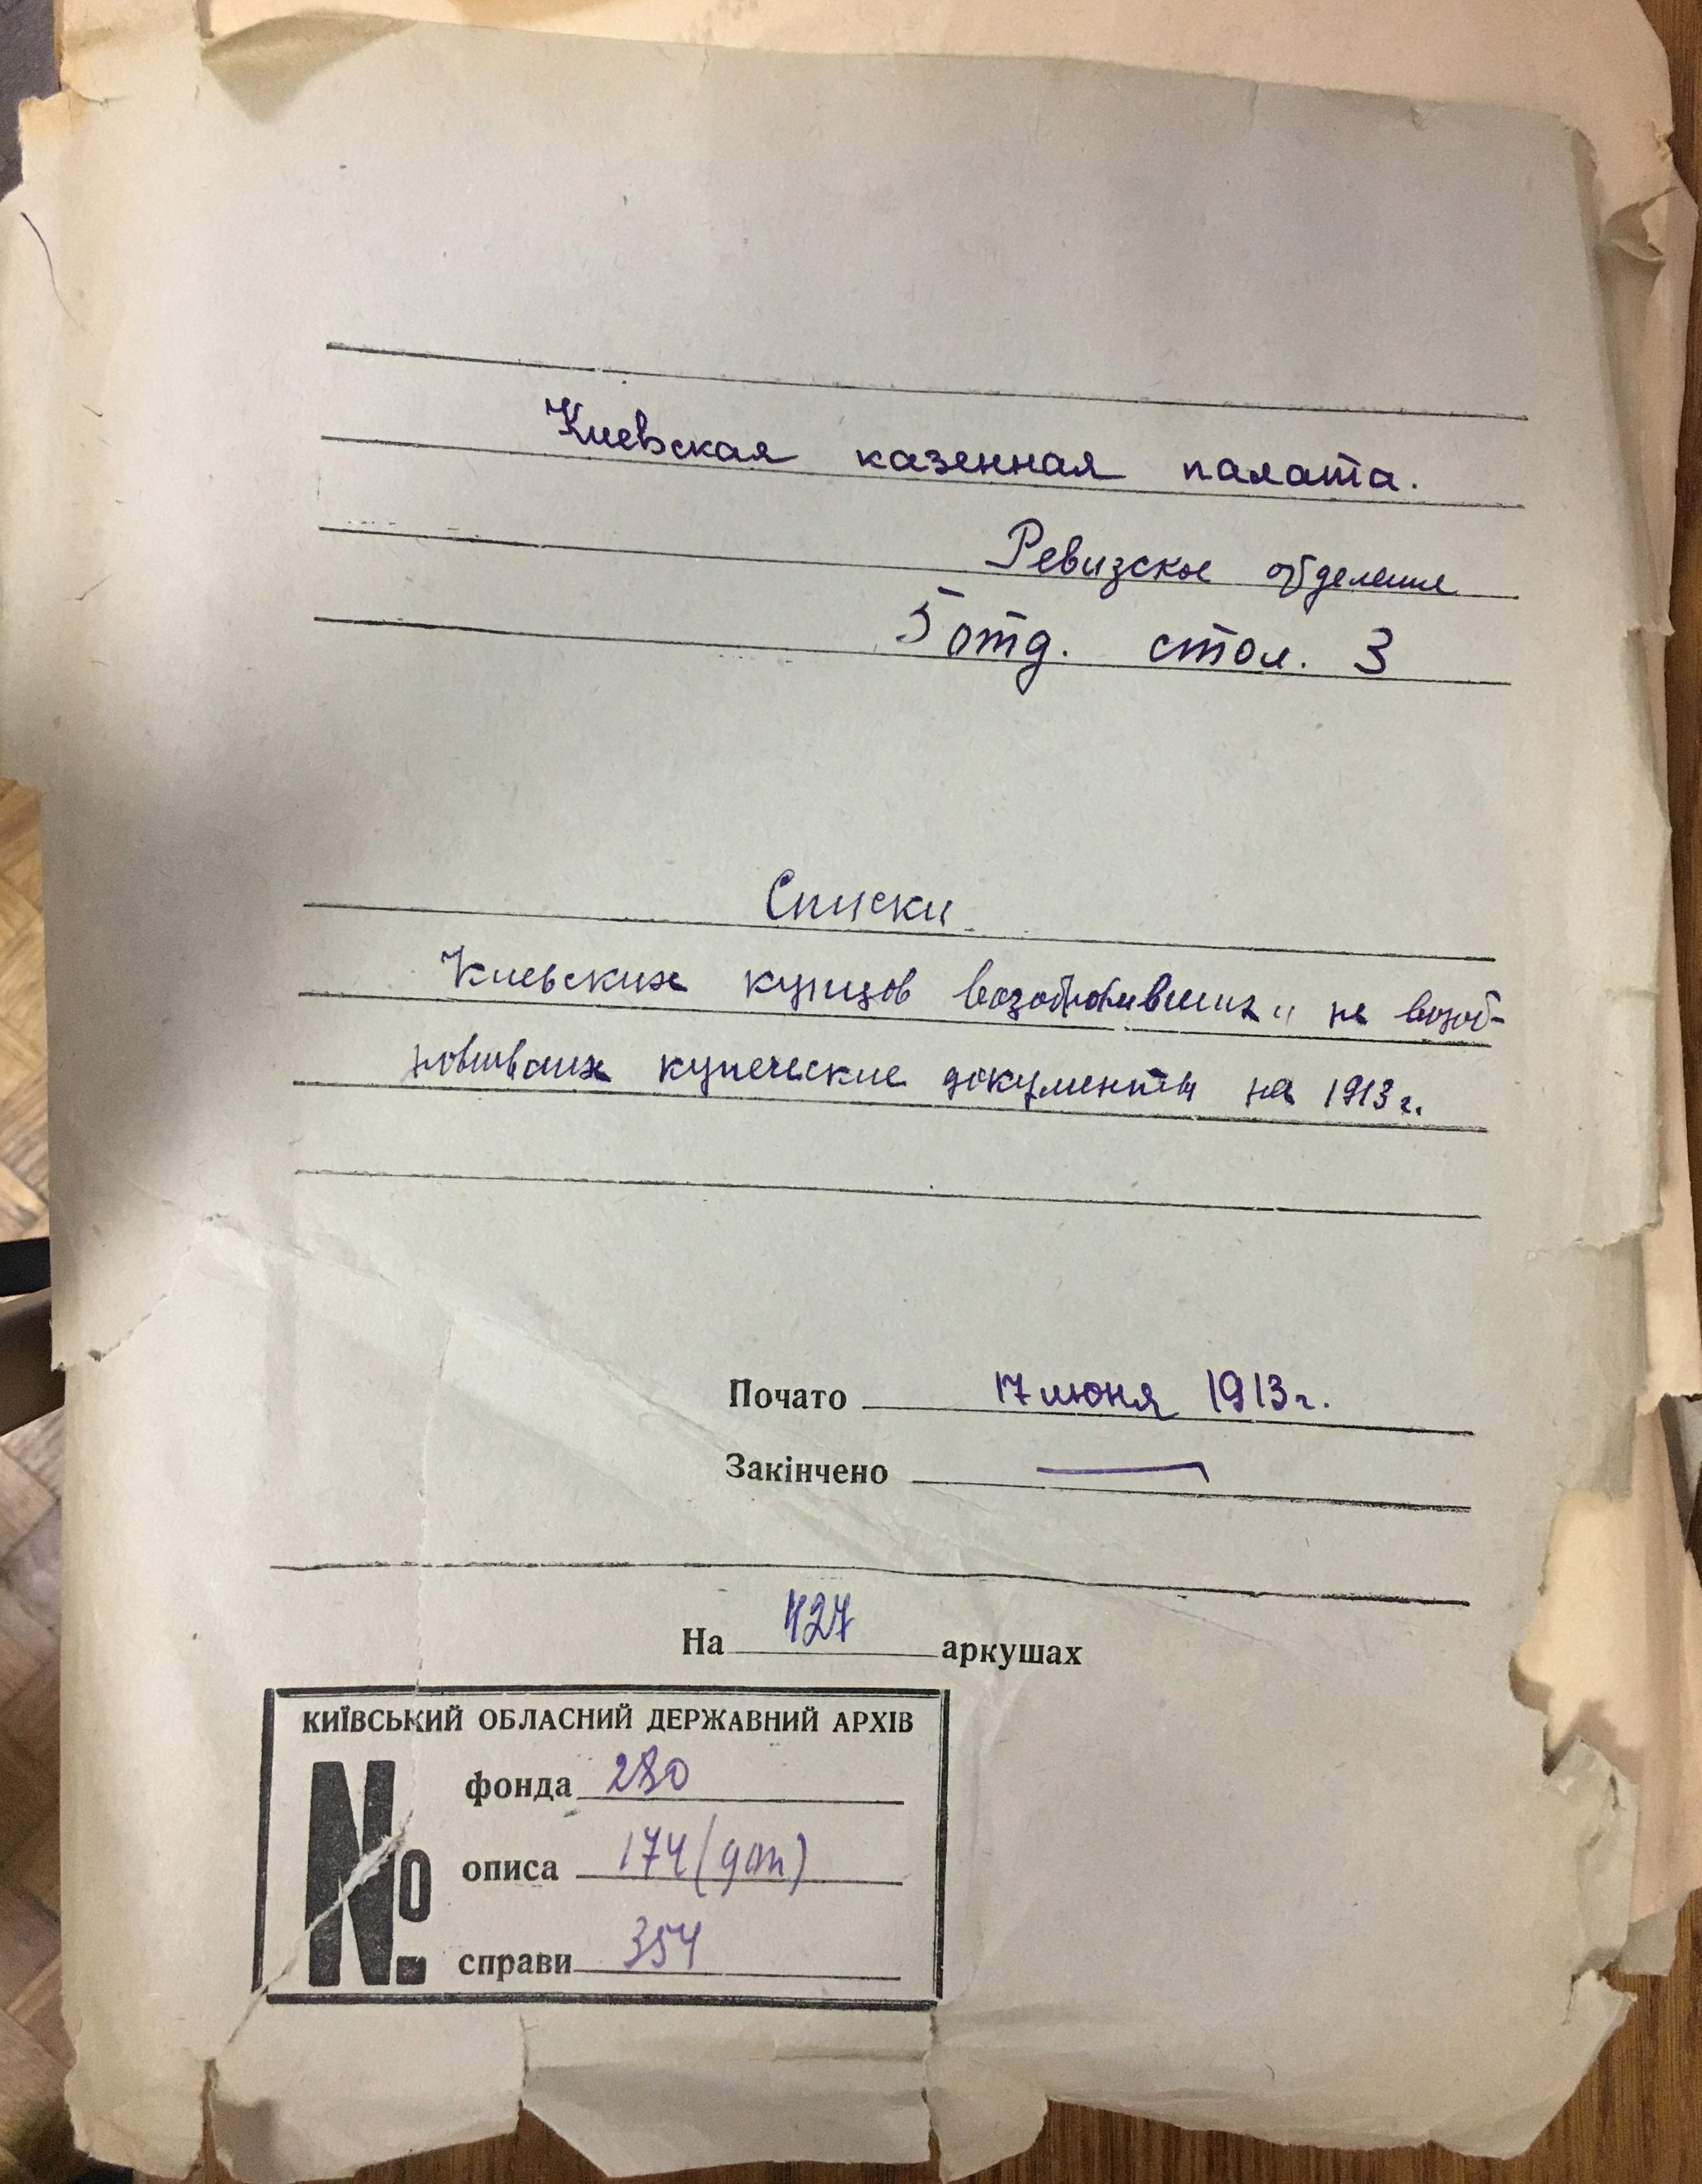 Киевская казенная палата.
Ревизское отделение
5 отд. стол. 3
Списки
Киевских купцов возобновивших и не возоб-
новивших купеческие документы на 1913 г.
Почато 17 июня 1913 г.
Закінчено —
На 427 аркушах
КИЇВСЬКИЙ ОБЛАСНИЙ ДЕРЖАВНИЙ АРХІВ
№ фонда 280
описа 174 (доп)
справи 354